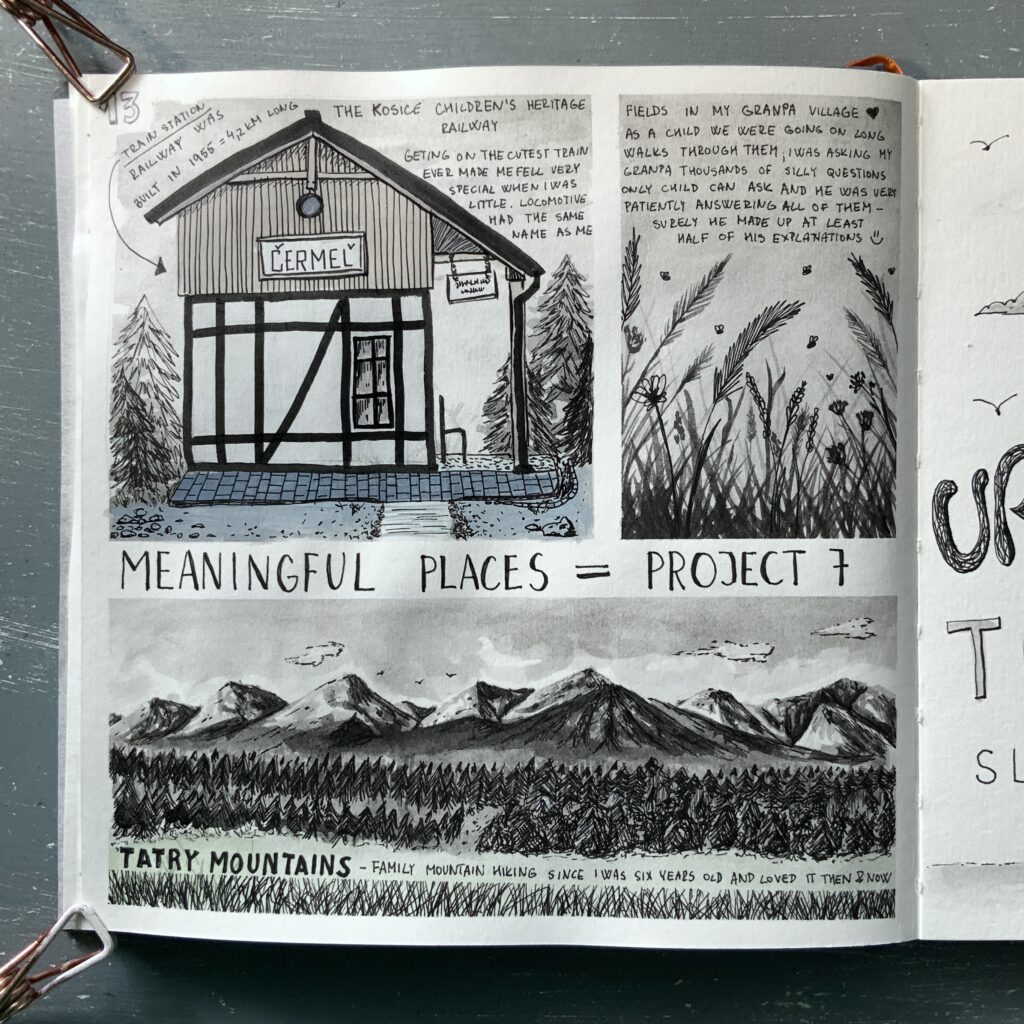 13
TRAIN STATION
RAILWAY WAS
BUILT IN 1955 = 4,2 KM LONG
THE KOSICE CHILDREN'S HERITAGE
RAILWAY
GETING ON THE CUTEST TRAIN
EVER MADE ME FELL VERY
SPECIAL WHEN I WAS
LITTLE. LOCOMOTIVE
HAD THE SAME
NAME AS ME
ČERMEĽ
FIELDS IN MY GRANPA VILLAGE ♥
AS A CHILD WE WERE GOING ON LONG
WALKS THROUGH THEM, I WAS ASKING MY
GRANPA THOUSANDS OF SILLY QUESTIONS
ONLY CHILD CAN ASK AND HE WAS VERY
PATIENTLY ANSWERING ALL OF THEM –
SURELY HE MADE UP AT LEAST
HALF OF HIS EXPLANATIONS ☺
MEANINGFUL PLACES = PROJECT 7
TATRY MOUNTAINS – FAMILY MOUNTAIN HIKING SINCE I WAS SIX YEARS OLD AND LOVED IT THEN & NOW
T
SL